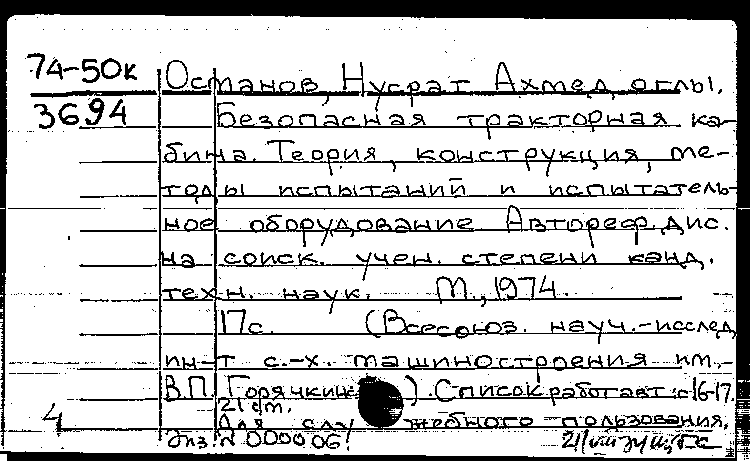 74-50к Османов, Нусрат Ахмед оглы.
3694 Безопасная тракторная ка-
бина. Теория, конструкция, ме-
тоды испытаний и испытатель-
ное оборудование Автореф. дис.
на соиск. учен. степени канд.
техн. наук. М., 1974.
17с. (Всесоюз. науч.-исслед
ин-т с.-х. машиностроения им.
В.П. Горячкина). Список работ авт: с 16-17.
21 см.
4 Для служебного пользования.
Экз. № 000006!